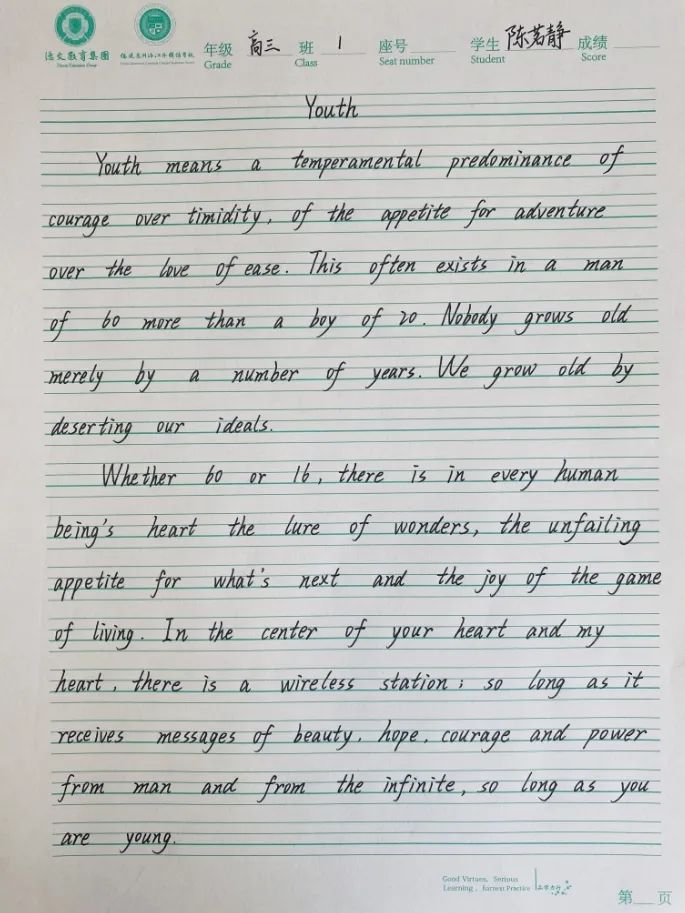 德文教育集團
年级 高三 班 1 座号 学生 陈茗静 成绩
Grade Class Seat number Student Score
Youth
Youth means a temperamental predominance of
courage over timidity, of the appetite for adventure
over the love of ease. This often exists in a man
of 60 more than a boy of 20. Nobody grows old
merely by a number of years. We grow old by
deserting our ideals.
Whether 60 or 16, there is in every human
being's heart the lure of wonders, the unfailing
appetite for what's next and the joy of the game
of living. In the center of your heart and my
heart, there is a wireless station; so long as it
receives messages of beauty, hope, courage and power
from man and from the infinite, so long as you
are young.
Good Virtues, Serious
Learning, Earnest Practice
第 页